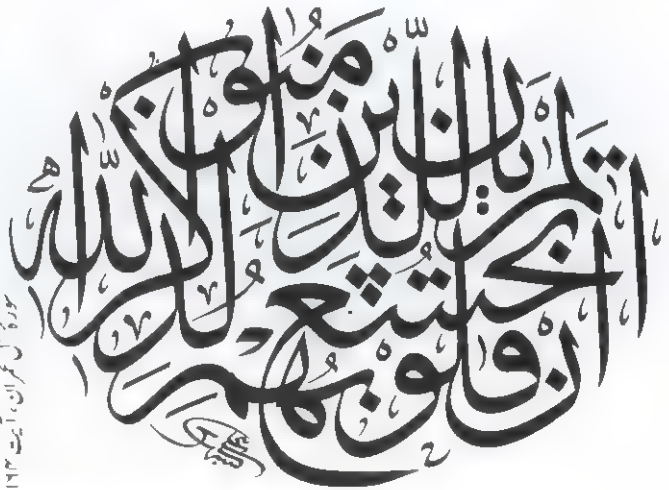 ألم يأن للذين آمنوا أن تخشع قلوبهم لذكر الله
سورة آل عمران، آیت